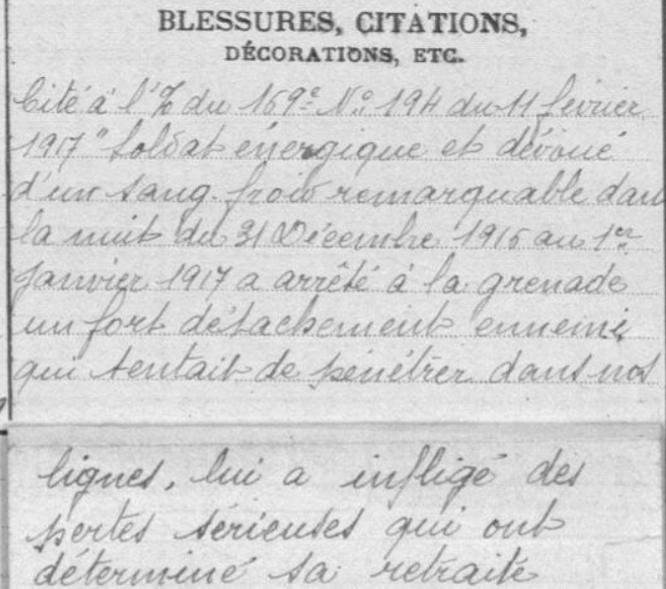 BLESSURES, CITATIONS,
DÉCORATIONS, ETC.
Cité à l'% du 169e No 194 du 11 février
1917 " Soldat énergique et dévoué
d'un sang-froid remarquable dans
la nuit du 31 Décembre 1916 au 1er
janvier 1917 a arrêté à la grenade
un fort détachement ennemi
qui tentait de pénétrer dans nos
lignes, lui a infligé des
pertes sérieuses qui ont
déterminé sa retraite